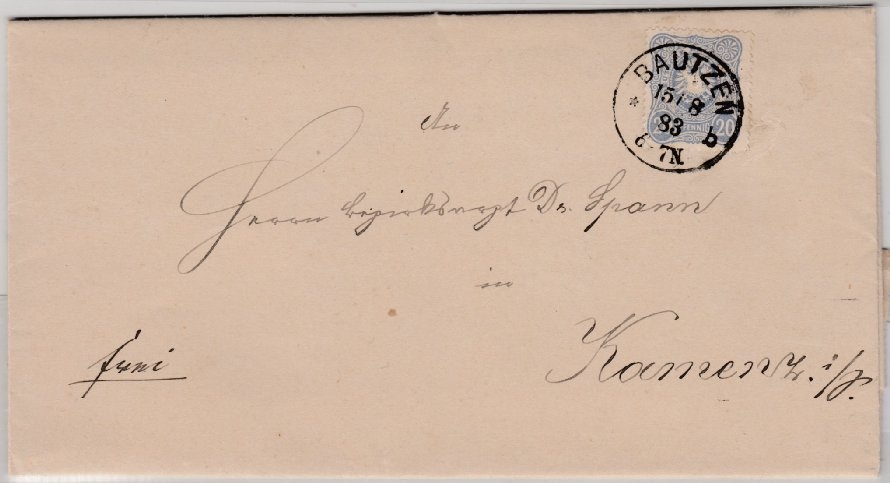 BAUTZEN
15/8
83
6-7N.
* b
20 PFENNIG 20
An
Herrn Bezirksarzt Dr. Spann
in
Kamenz i/S.
frei